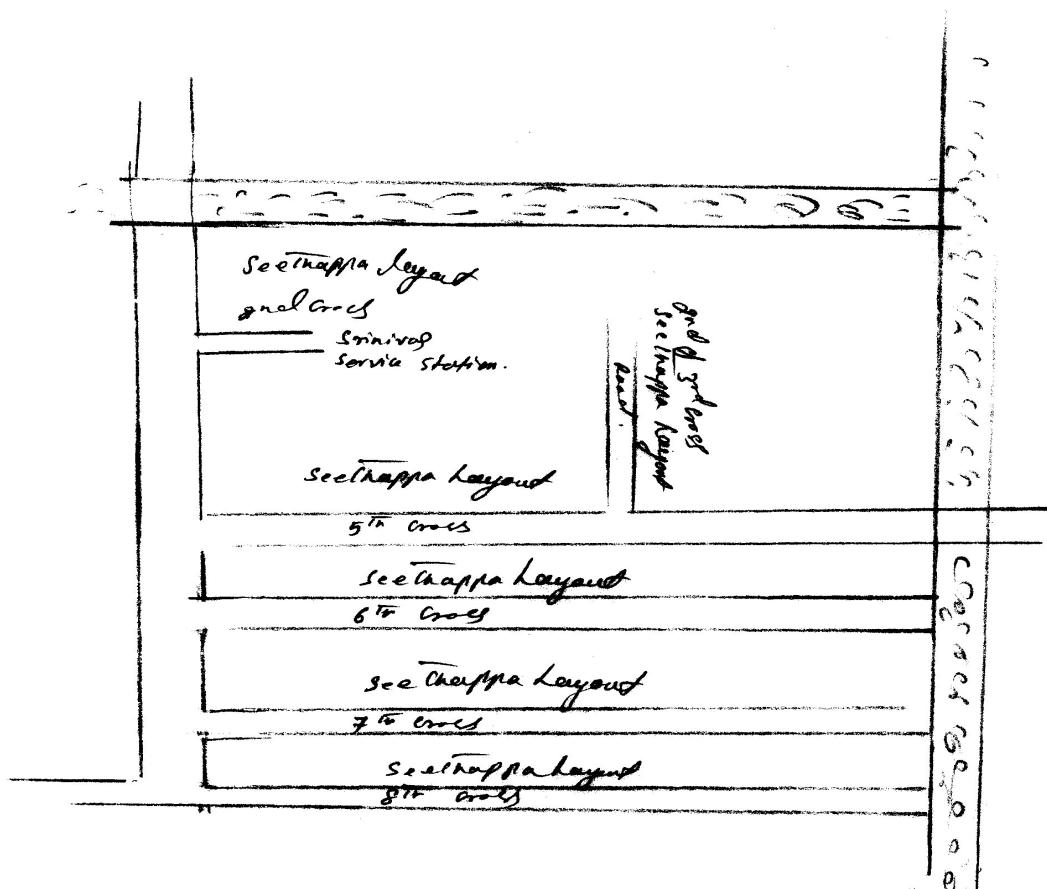 Seethappa Layout
2nd Cross
Srinivas
Service Station.
2nd & 3rd Cross
Seethappa Layout
Road.
Seethappa Layout
5th Cross
Seethappa Layout
6th Cross
Seethappa Layout
7th Cross
Seethappa Layout
8th Cross